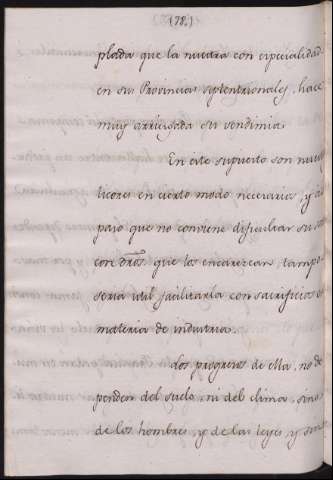 (78.)
plada que la nuestra con especialidad
en sus Provincias septentrionales, hace
muy arriesgada su vendimia.
En este supuesto son nues
licores en cierto modo necesarios, y al
paso que no conviene dificultar su
con dros. que los encarezcan, tampo
seria util facilitarla con sacrificios
materia de industria.
Los progresos de ella, no de
penden del suelo, ni del clima, sino
de los hombres, y de las leyes, y